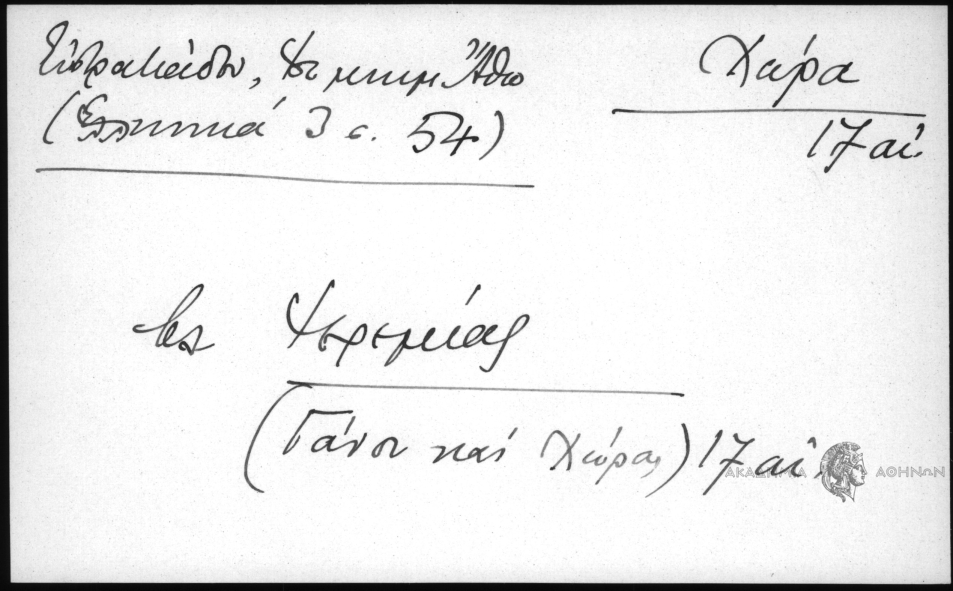 Εὐστρατιάδου, Ἱστ μνημ Ἄθω
(Ἑλληνικά 3 σ. 54)
Χώρα
17 αἰ.
Ἱερεμίας
(Γάνου καί Χώρας) 17 αἰ.
ΑΚΑΔΗΜΙΑ ΑΘΗΝΩΝ